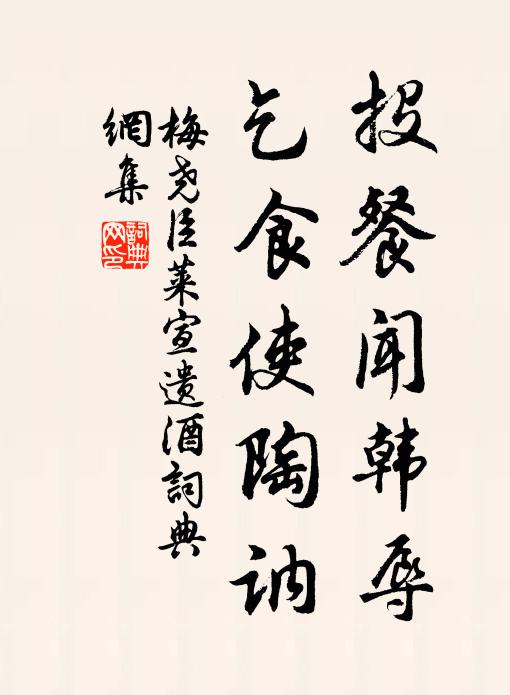 投餐闻韩辱
乞食使陶讷
梅尧臣莱宣遗酒詞典
網集
詞典网印